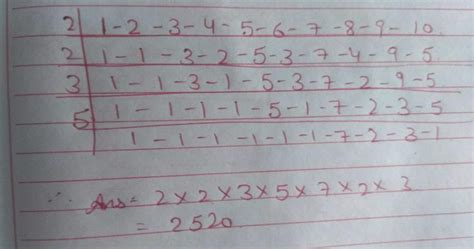 2 | 1-2-3-4-5-6-7-8-9-10
2 | 1-1-3-2-5-3-7-4-9-5
3 | 1-1-3-1-5-3-7-2-9-5
5 | 1-1-1-1-5-1-7-2-3-5
1-1-1-1-1-1-7-2-3-1
∴ Ans = 2×2×3×5×7×2×3
= 2520